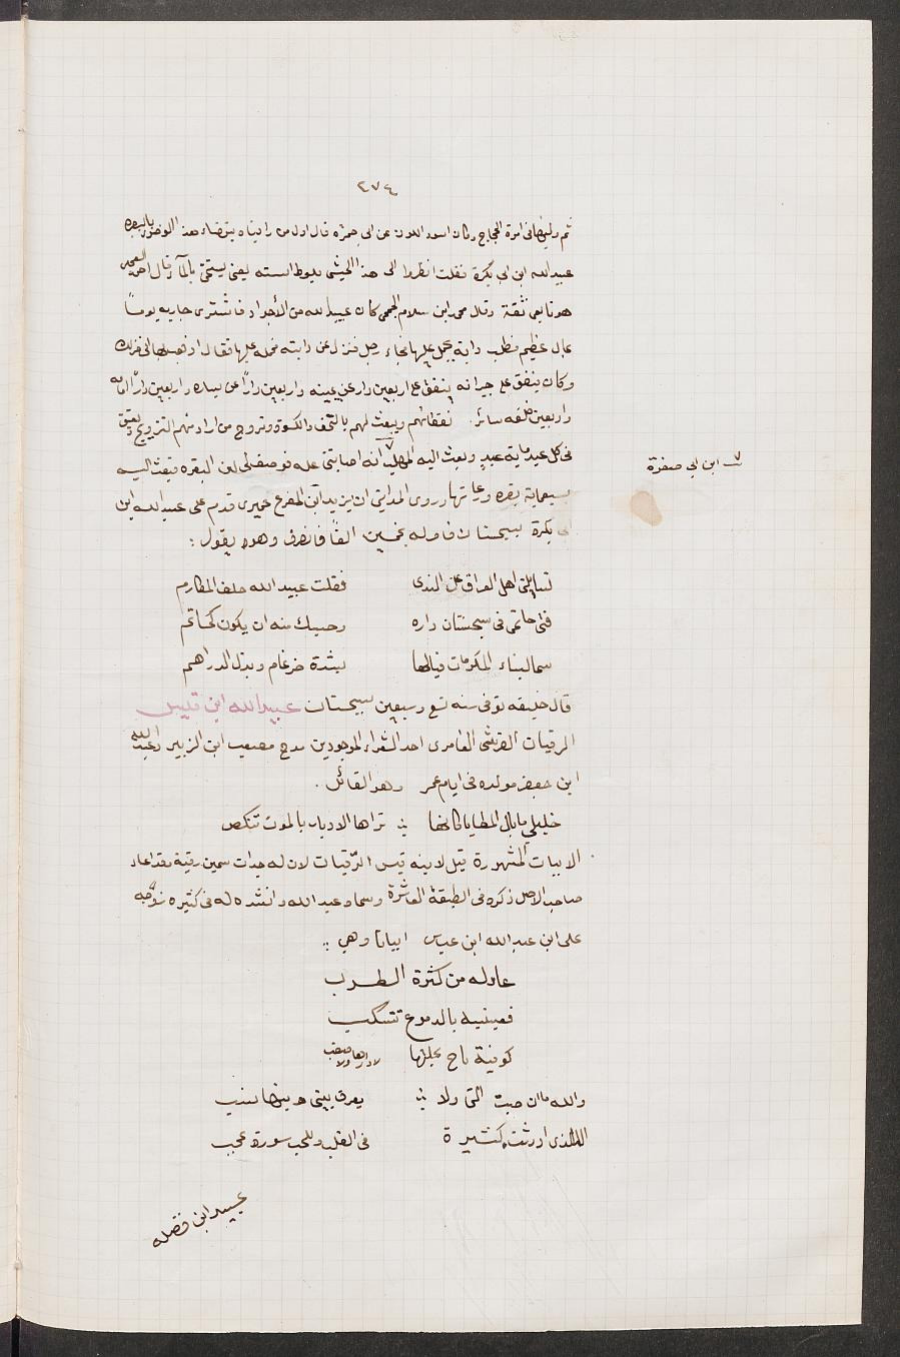 ٢٧٤
ثم وليها في امرة الحجاج وكان اسود اللون عن ابي حمزه قال اول من رايناه يتوضاء هذا الوضوء بالبصره
عبيد الله ابن ابي بكرة فقلت انظروا الى هذا الحبشي يلوط استه يعني يستنجي بالماء وقال احمد العجلي
هو تابعي ثقة وقال محمد ابن سلام الجمحي كان عبيد الله من الأجواد فاشترى جاريه يوماً
بمال عظيم فطلب دابة تحمل عليها فجاء رجل فنزل عن دابته فحمله عليها فقال اذهب بها الى منزلك
وكان ينفق على جيرانه ينفق على اربعين دار عن يمينه واربعين داراً عن يساره واربعين داراً امامه
واربعين خلفه سائر نفقاتهم ويبعث لهم بالتحف والكسوة وتزوج من اراد منهم التزويج ويعتق
في كل عيد ماية عبد وبعث اليه المهلب انه اصابتني عله فوصف لي لبن البقره فبعث اليه
بسبعماية بقره ورعاتها وروى المدايني ان يزيد ابن المفرغ حميري قدم على عبيد الله ابن
ابي بكرة بسجستان فامر له بخمسين الفاً فانصرف وهو يقول :
تسايلني اهل العراق عن الندى فقلت عبيد الله حلف المكارم
فتى حاتمي في سجستان داره وحسبك منه ان يكون كحاتم
سما لبناء المكرمات فنالها بشدة ضرغام وبذل الدراهم
قال خليفه توفي سنه تسع وسبعين بسجستان عبيد الله ابن قيس
الرقيات القرشي العامري احد الشعراء الموجودين مدح مصعب ابن الزبير وعبد الله
ابن جعفر مولده في ايام عمر وهو القائل .
خليلي ما بال المطايا كانها تراها الادبار بالموت تنكص
الابيات المشهورة قيل لابيه قيس الرّقيات لان له جدات سمين رقية وقد اعاد
صاحب الاصل ذكره في الطبقة العاشرة وسماه عبد الله وانشد له في كثيره نوّحه
على ابن عبد الله ابن عباس ابياتا وهي
عاد له من كثرة الطرب
فعينيه بالدموع تنسكب
كوفية نازح محلتها لا دارها ولا صقب
والله ما ان صبت الي ولا يعرف بيني وبينها نسب
الا الذي اورثت كثيرة في القلب وللحب سورة عجب
عبيد ابن فضله
ـب ابن ابي صفرة